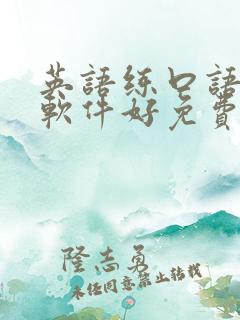 英語练口語
軟件好免費
隆志勇
未经同意禁止转载